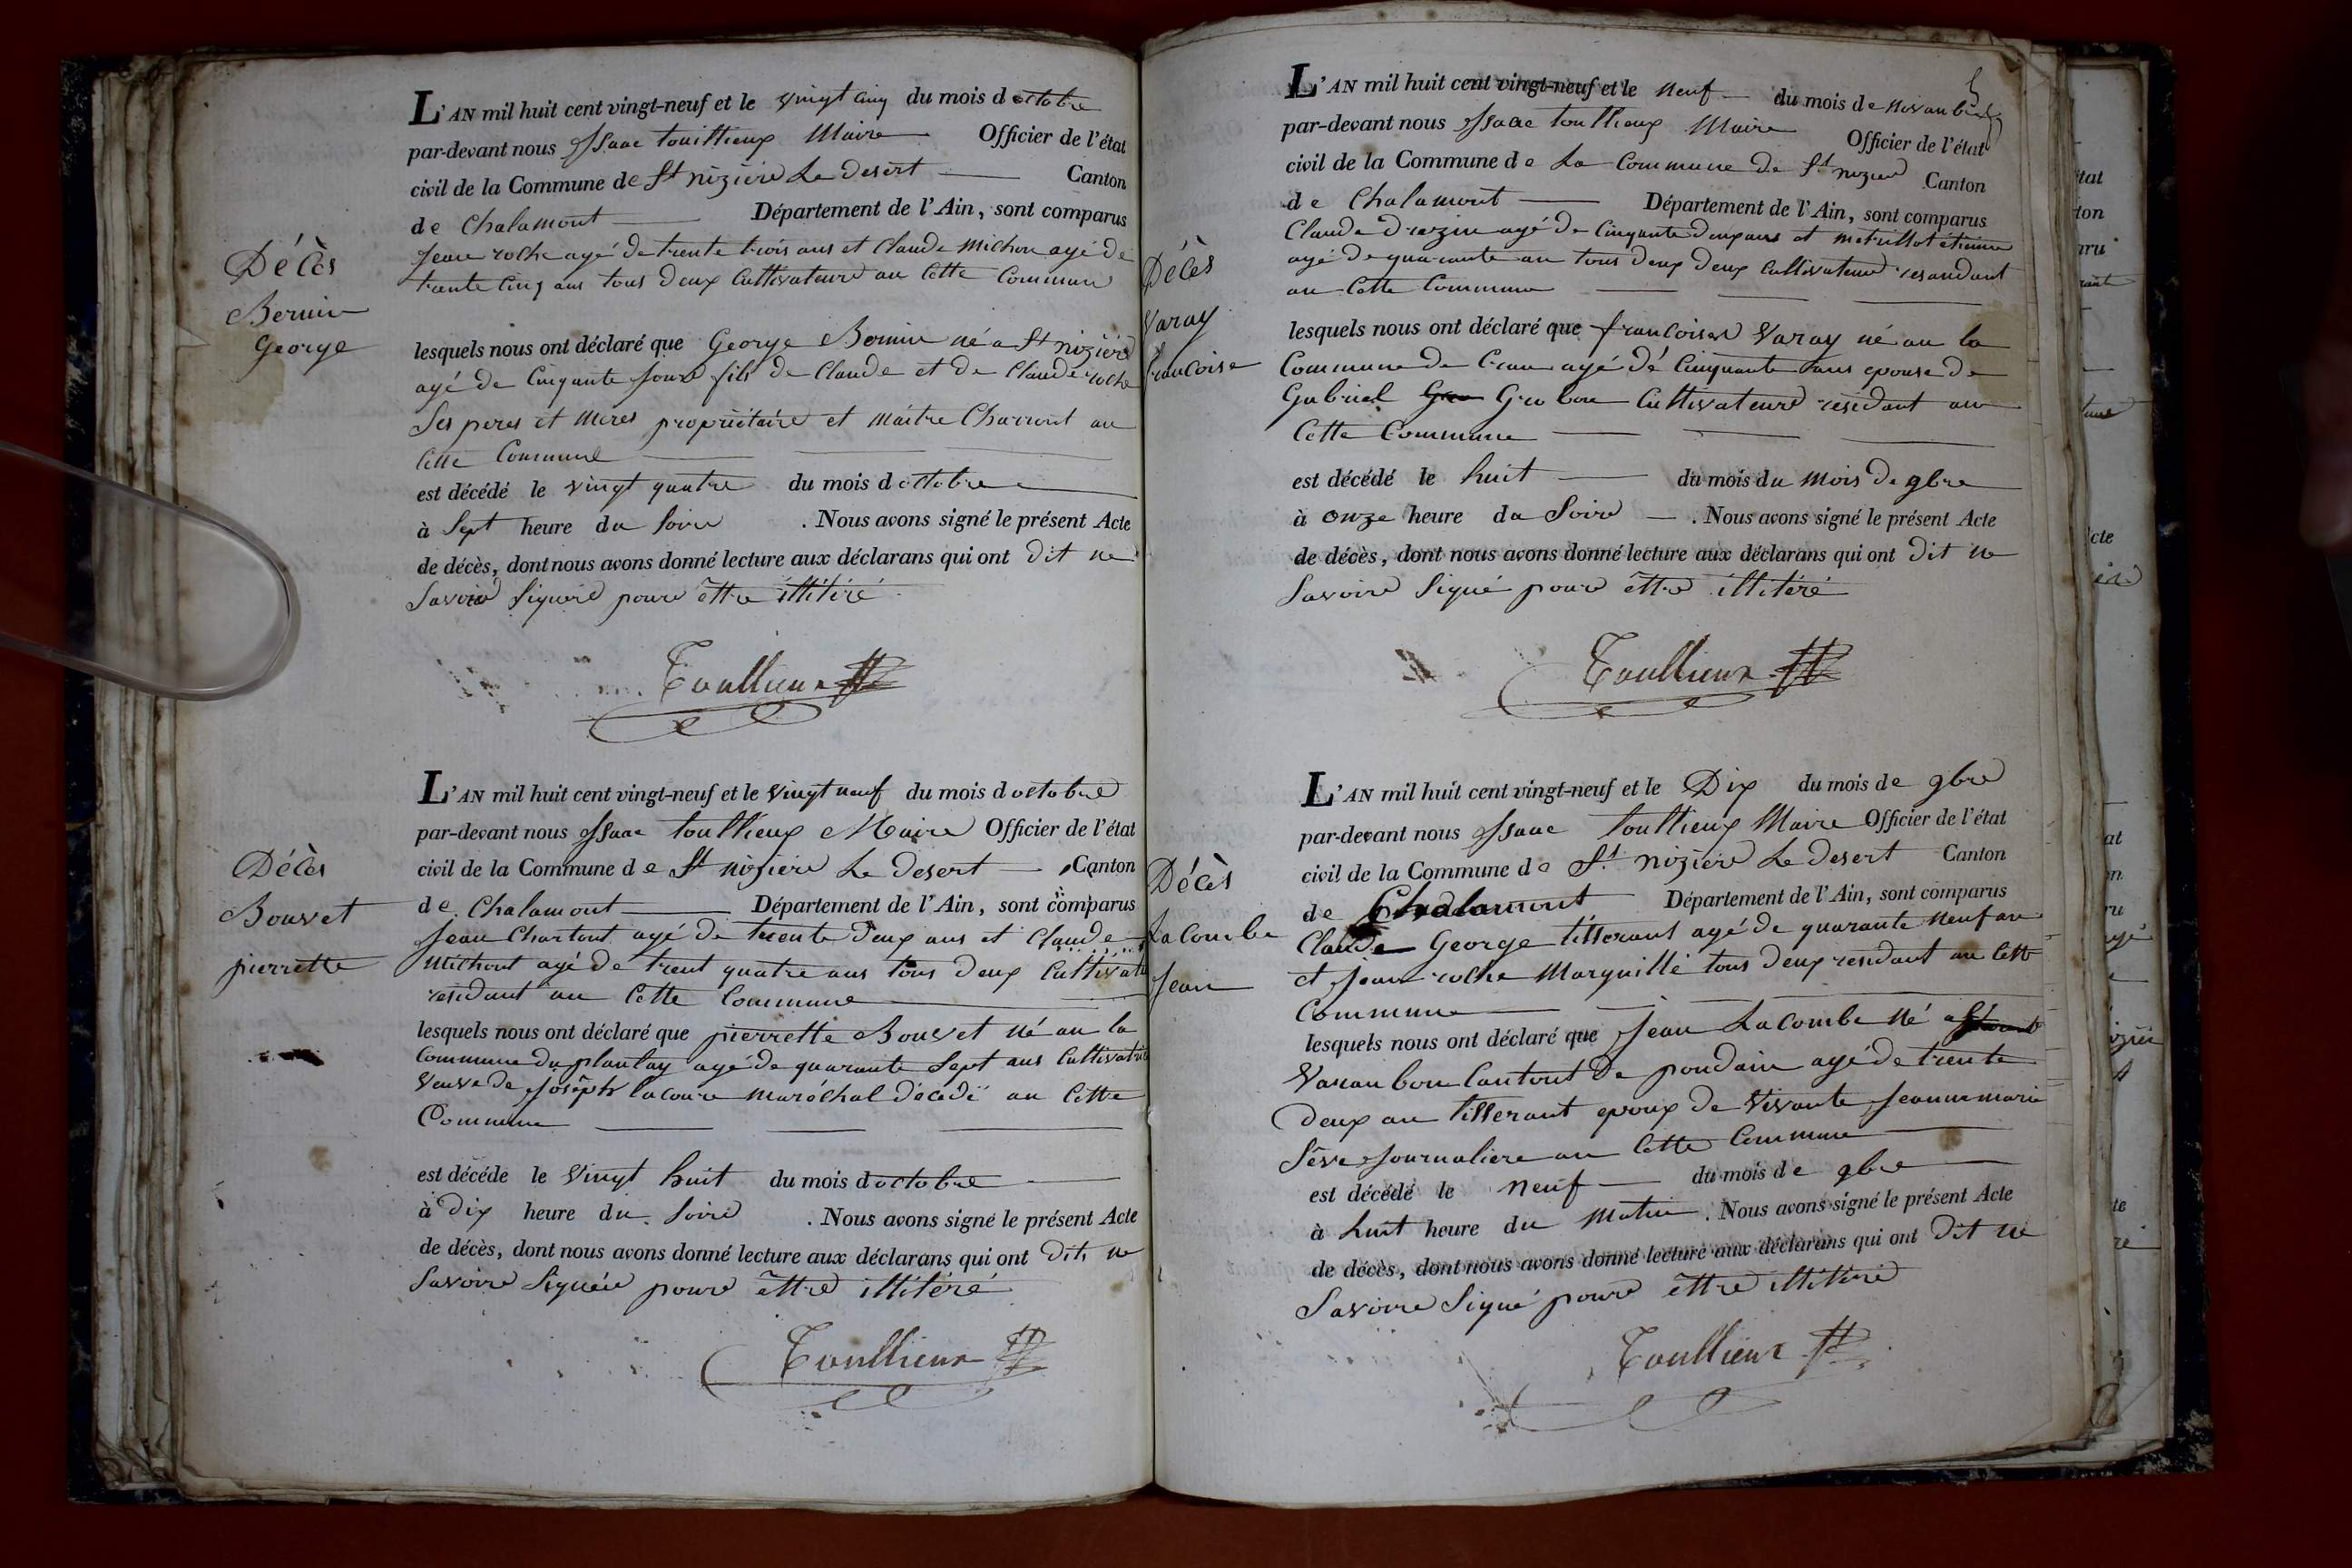 Décès
Bernin
George
L'AN mil huit cent vingt-neuf et le vingt cinq du mois d octobre
par-devant nous Issaac touillieux Maire Officier de l'état
civil de la Commune de St niziere Le desert Canton
de Chalamont Département de l'Ain, sont comparus
Jean roche agé de trente trois ans et Claude Michon agé de
trante Cinq ans tous deux Cultivateure au Cette Commune
lesquels nous ont déclaré que George Bernin né a St niziere
agé de Cinquante Joure fils de Claude et de Claudi roche
Ses peres et meres propriétaire et maitre Charront au
Cette Commune
est décédé le vingt quatre du mois d octobre
à Sept heure du Soire . Nous avons signé le présent Acte
de décès, dont nous avons donné lecture aux déclarans qui ont dit ne
Savoire Signere poure êttre illitéré
Toullieux
Décès
Bouvet
pierrette
L'AN mil huit cent vingt-neuf et le vingt neuf du mois d octobre
par-devant nous Issaac toullieux Maire Officier de l'état
civil de la Commune de St niziere Le desert Canton
de Chalamont Département de l'Ain, sont comparus
Jean Chartout agé de trente deux ans et Claude
Michont agé de trent quatre ans tous deux Cultivate
residant au Cette Commune
lesquels nous ont déclaré que pierrette Bouvet né au la
Commune du plantay agé de quarante Sept ans Cultivatrice
veuve de Josêph lacoure maréchal décédé au Cette
Commune
est décédé le vingt huit du mois d octobre
à dix heure du Soire . Nous avons signé le présent Acte
de décès, dont nous avons donné lecture aux déclarans qui ont dit ne
Savoire Signére poure êttre illitéré
Toullieux
Décès
Varay
francoise
L'AN mil huit cent vingt-neuf et le neuf du mois de novanbre
par-devant nous Issaac toullieux Maire Officier de l'état
civil de la Commune de La Commune de St nizier Canton
de Chalamont Département de l'Ain, sont comparus
Claude agé de Cinquante deux ans et étienne
agé de quarante an tous deux deux Cultivateure resandant
au Cette Commune
lesquels nous ont déclaré que francoise Varay né au la
Commune de Cran agé de Cinquante ans epouse de
Gabriel Grubon Cultivateure residant au
Cette Commune
est décédé le huit du mois du mois de 9bre
à onze heure du Soire . Nous avons signé le présent Acte
de décès, dont nous avons donné lecture aux déclarans qui ont dit ne
Savoire Signé poure êttre illitéré
Toullieux
Décès
La Combe
Jean
L'AN mil huit cent vingt-neuf et le Dix du mois de 9bre
par-devant nous Issaac toullieux Maire Officier de l'état
civil de la Commune de St niziere Le desert Canton
de Chalamont Département de l'Ain, sont comparus
Claude George tisserant agé de quarante neuf an
et Jean roche Marguillé tous deux residant au Cette
Commune
lesquels nous ont déclaré que Jean La Combe né a
Varanbon Cantont De pondain agé de trente
deux an tisserant epoux de vivante Jeanne marie
Sêve Journaliere au Cette Commune
est décédé le neuf du mois de 9bre
à huit heure du matin . Nous avons signé le présent Acte
de décès, dont nous avons donné lecture aux déclarans qui ont dit ne
Savoire Signé poure êttre illitéré
Toullieux